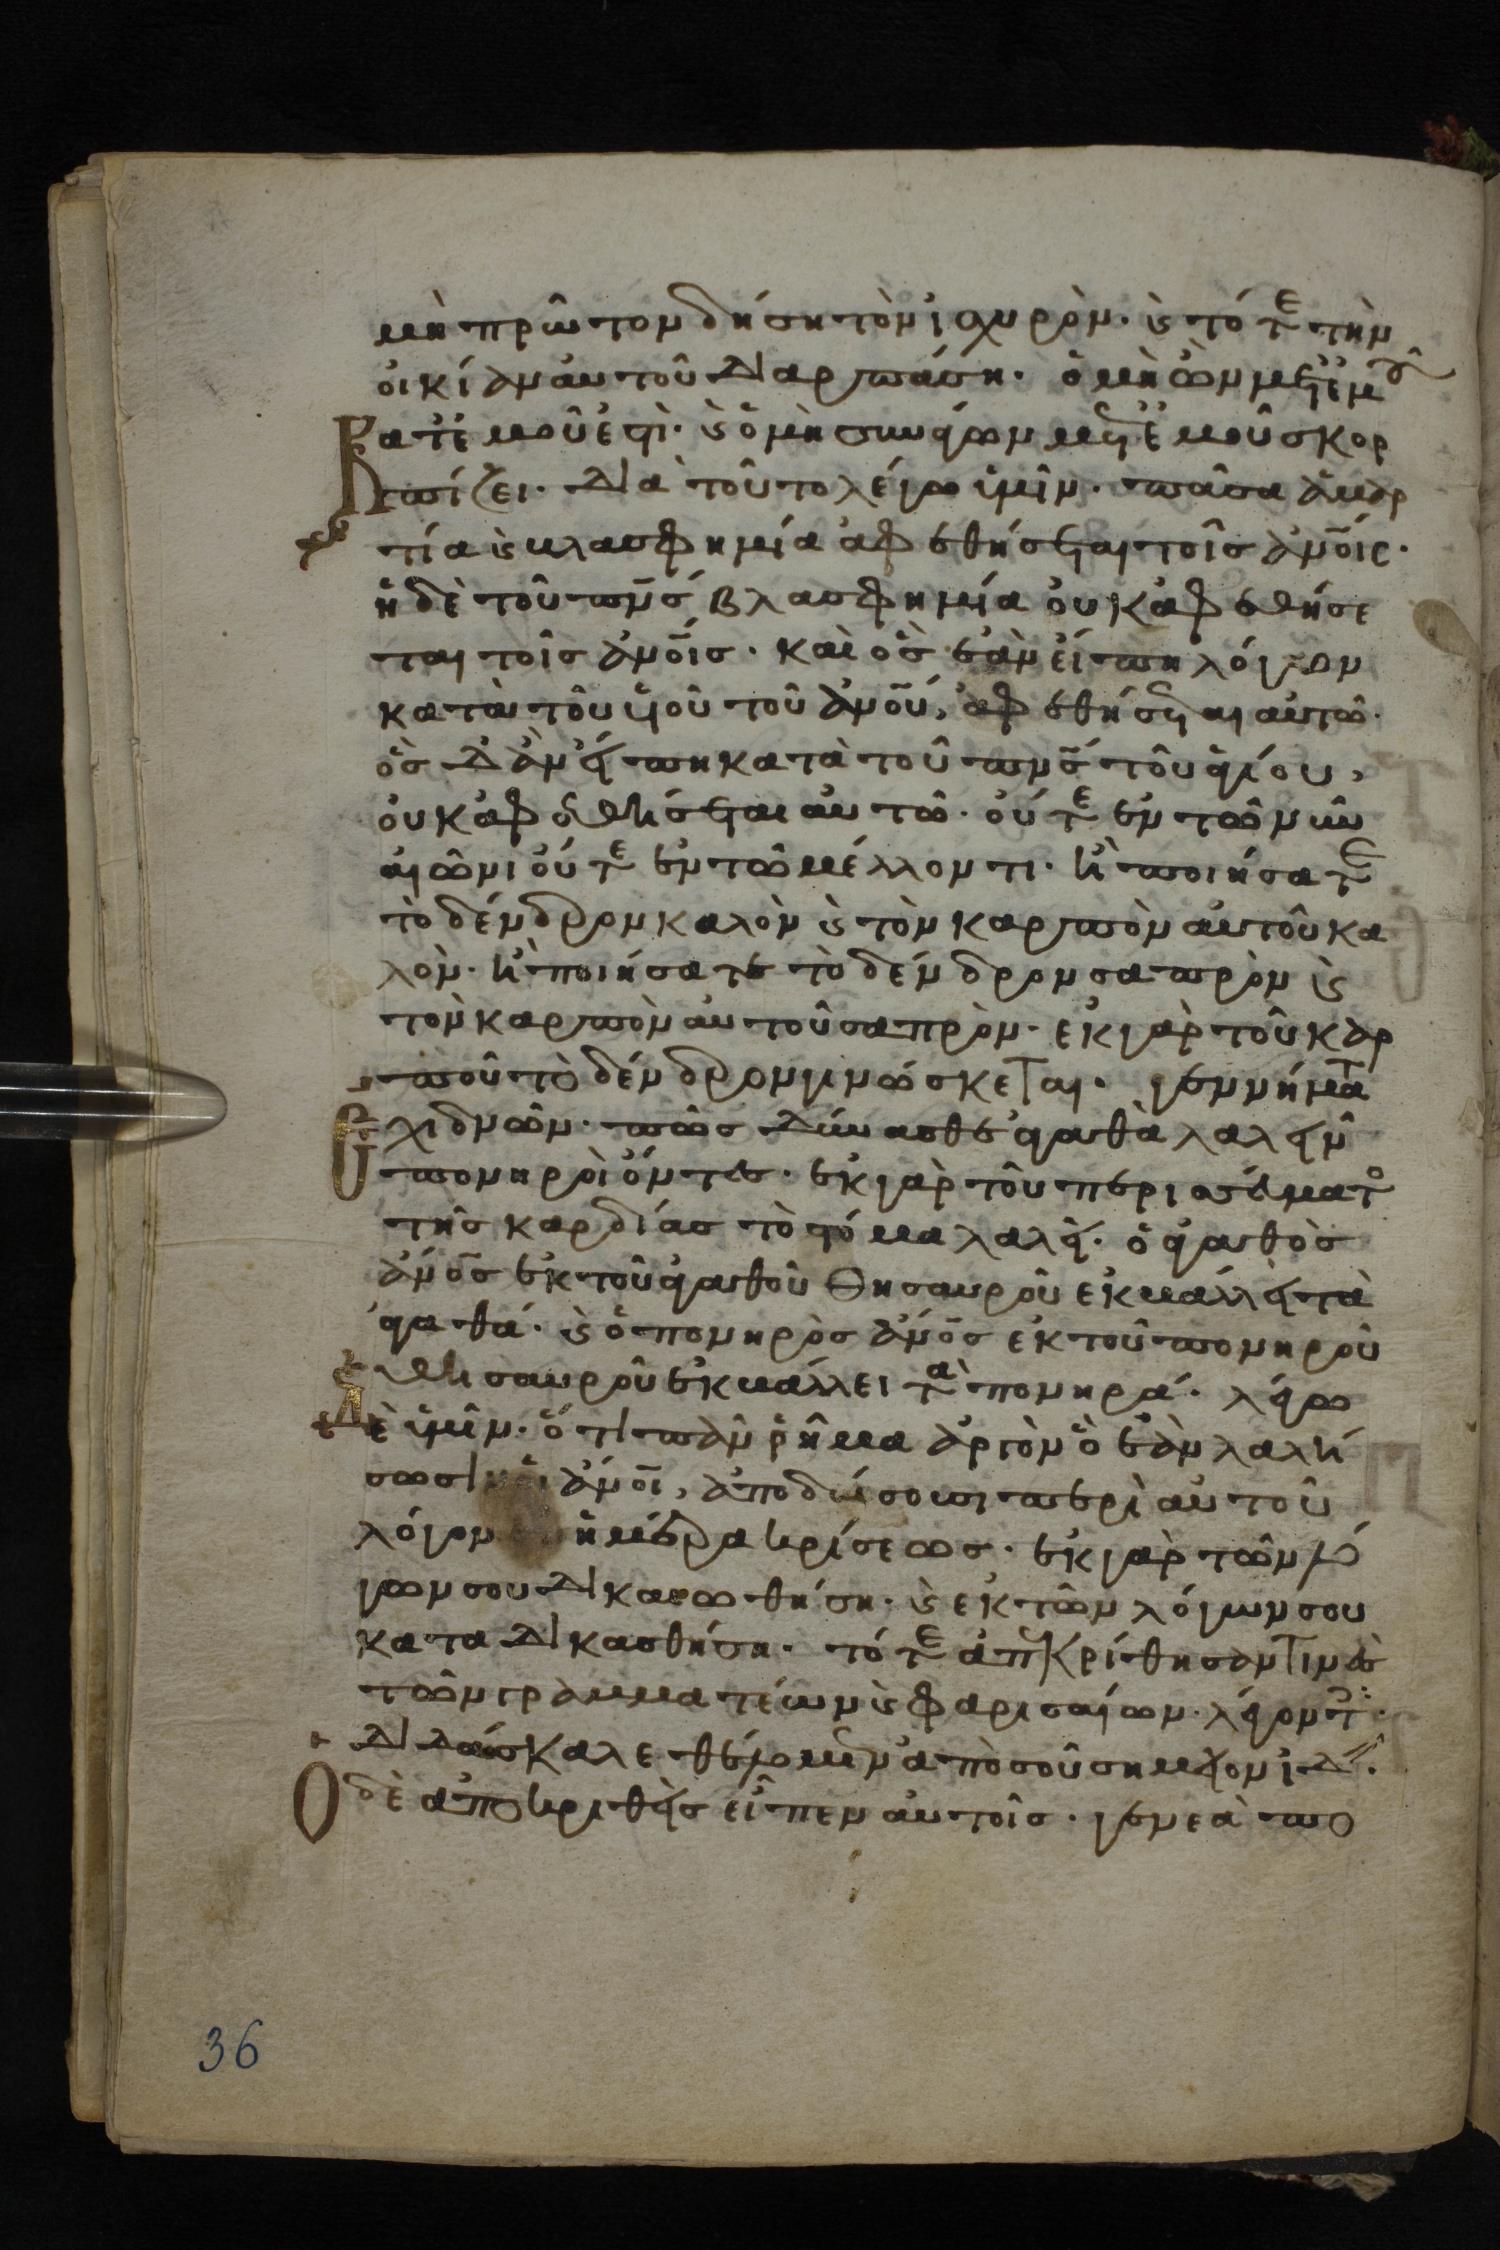 μὴ πρῶτον δήση τὸν ἰσχυρὸν· κ τότε τὴν
οἰκίαν αὐτοῦ διαρπάση· ὁ μὴ ὢν μετ ἐμοῦ
κατ ἐμοῦ ἐστὶ· κ ὁ μὴ συνάγων μετ ἐμοῦ σκορ
πίζει· Διὰ τοῦτο λέγω ὑμῖν· πᾶσα ἁμαρ
τία κ βλασφημία ἀφεθήσεται τοῖς ἀνοῖς·
ἡ δὲ τοῦ πνσ βλασφημία οὐκ ἀφεθήσε
ται τοῖς ἀνοῖς· καὶ ὃς ἐὰν εἴπη λόγον
κατὰ τοῦ υἱοῦ τοῦ ἀνοῦ, ἀφεθήσεται αὐτῶ·
ὃς δ ἂν εἴπη κατὰ τοῦ πνσ τοῦ ἁγίου,
οὐκ ἀφεθήσεται αὐτῶ· οὔτε ἐν τῶ νῦν
αἰῶνι οὔτε ἐν τῶ μέλλοντι· ἢ ποιήσατε
τὸ δένδρον καλὸν κ τὸν καρπὸν αὐτοῦ κα
λὸν· ἢ ποιήσατε τὸ δένδρον σαπρὸν κ
τὸν καρπὸν αὐτοῦ σαπρὸν· ἐκ γὰρ τοῦ καρ
ποῦ τὸ δένδρον γινώσκεται· γεννήματα
ἐχιδνῶν· πῶς δύνασθε ἀγαθὰ λαλεῖν
πονηροὶ ὄντες· ἐκ γὰρ τοῦ περισσεύματος
τῆς καρδίας τὸ στόμα λαλεῖ· ὁ ἀγαθὸς
ἄνοσ ἐκ τοῦ ἀγαθοῦ θησαυροῦ ἐκβάλλει τὰ
ἀγαθά· κ ὁ πονηρὸς ἄνοσ ἐκ τοῦ πονηροῦ
θησαυροῦ ἐκβάλλει τὰ πονηρά· λέγω
δὲ ὑμῖν· ὅτι πᾶν ῥῆμα ἀργὸν ὃ ἐὰν λαλή
σωσιν οἱ ἄνοι, ἀποδώσουσι περὶ αὐτοῦ
λόγον ἐν ἡμέρα κρίσεως· ἐκ γὰρ τῶν λό
γων σου δικαιωθήση· κ ἐκ τῶν λόγων σου
καταδικασθήση· τότε ἀπεκρίθησαν τινὲς
τῶν γραμματέων κ φαρισαίων· λέγοντες·
Διδάσκαλε θέλομεν ἀπὸ σοῦ σημεῖον ἰδεῖν·
Ὁ δὲ ἀποκριθεὶς εἶπεν αὐτοῖς· γενεὰ πο
36